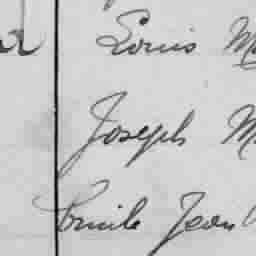 Louis M
Joseph M
Emile Jean